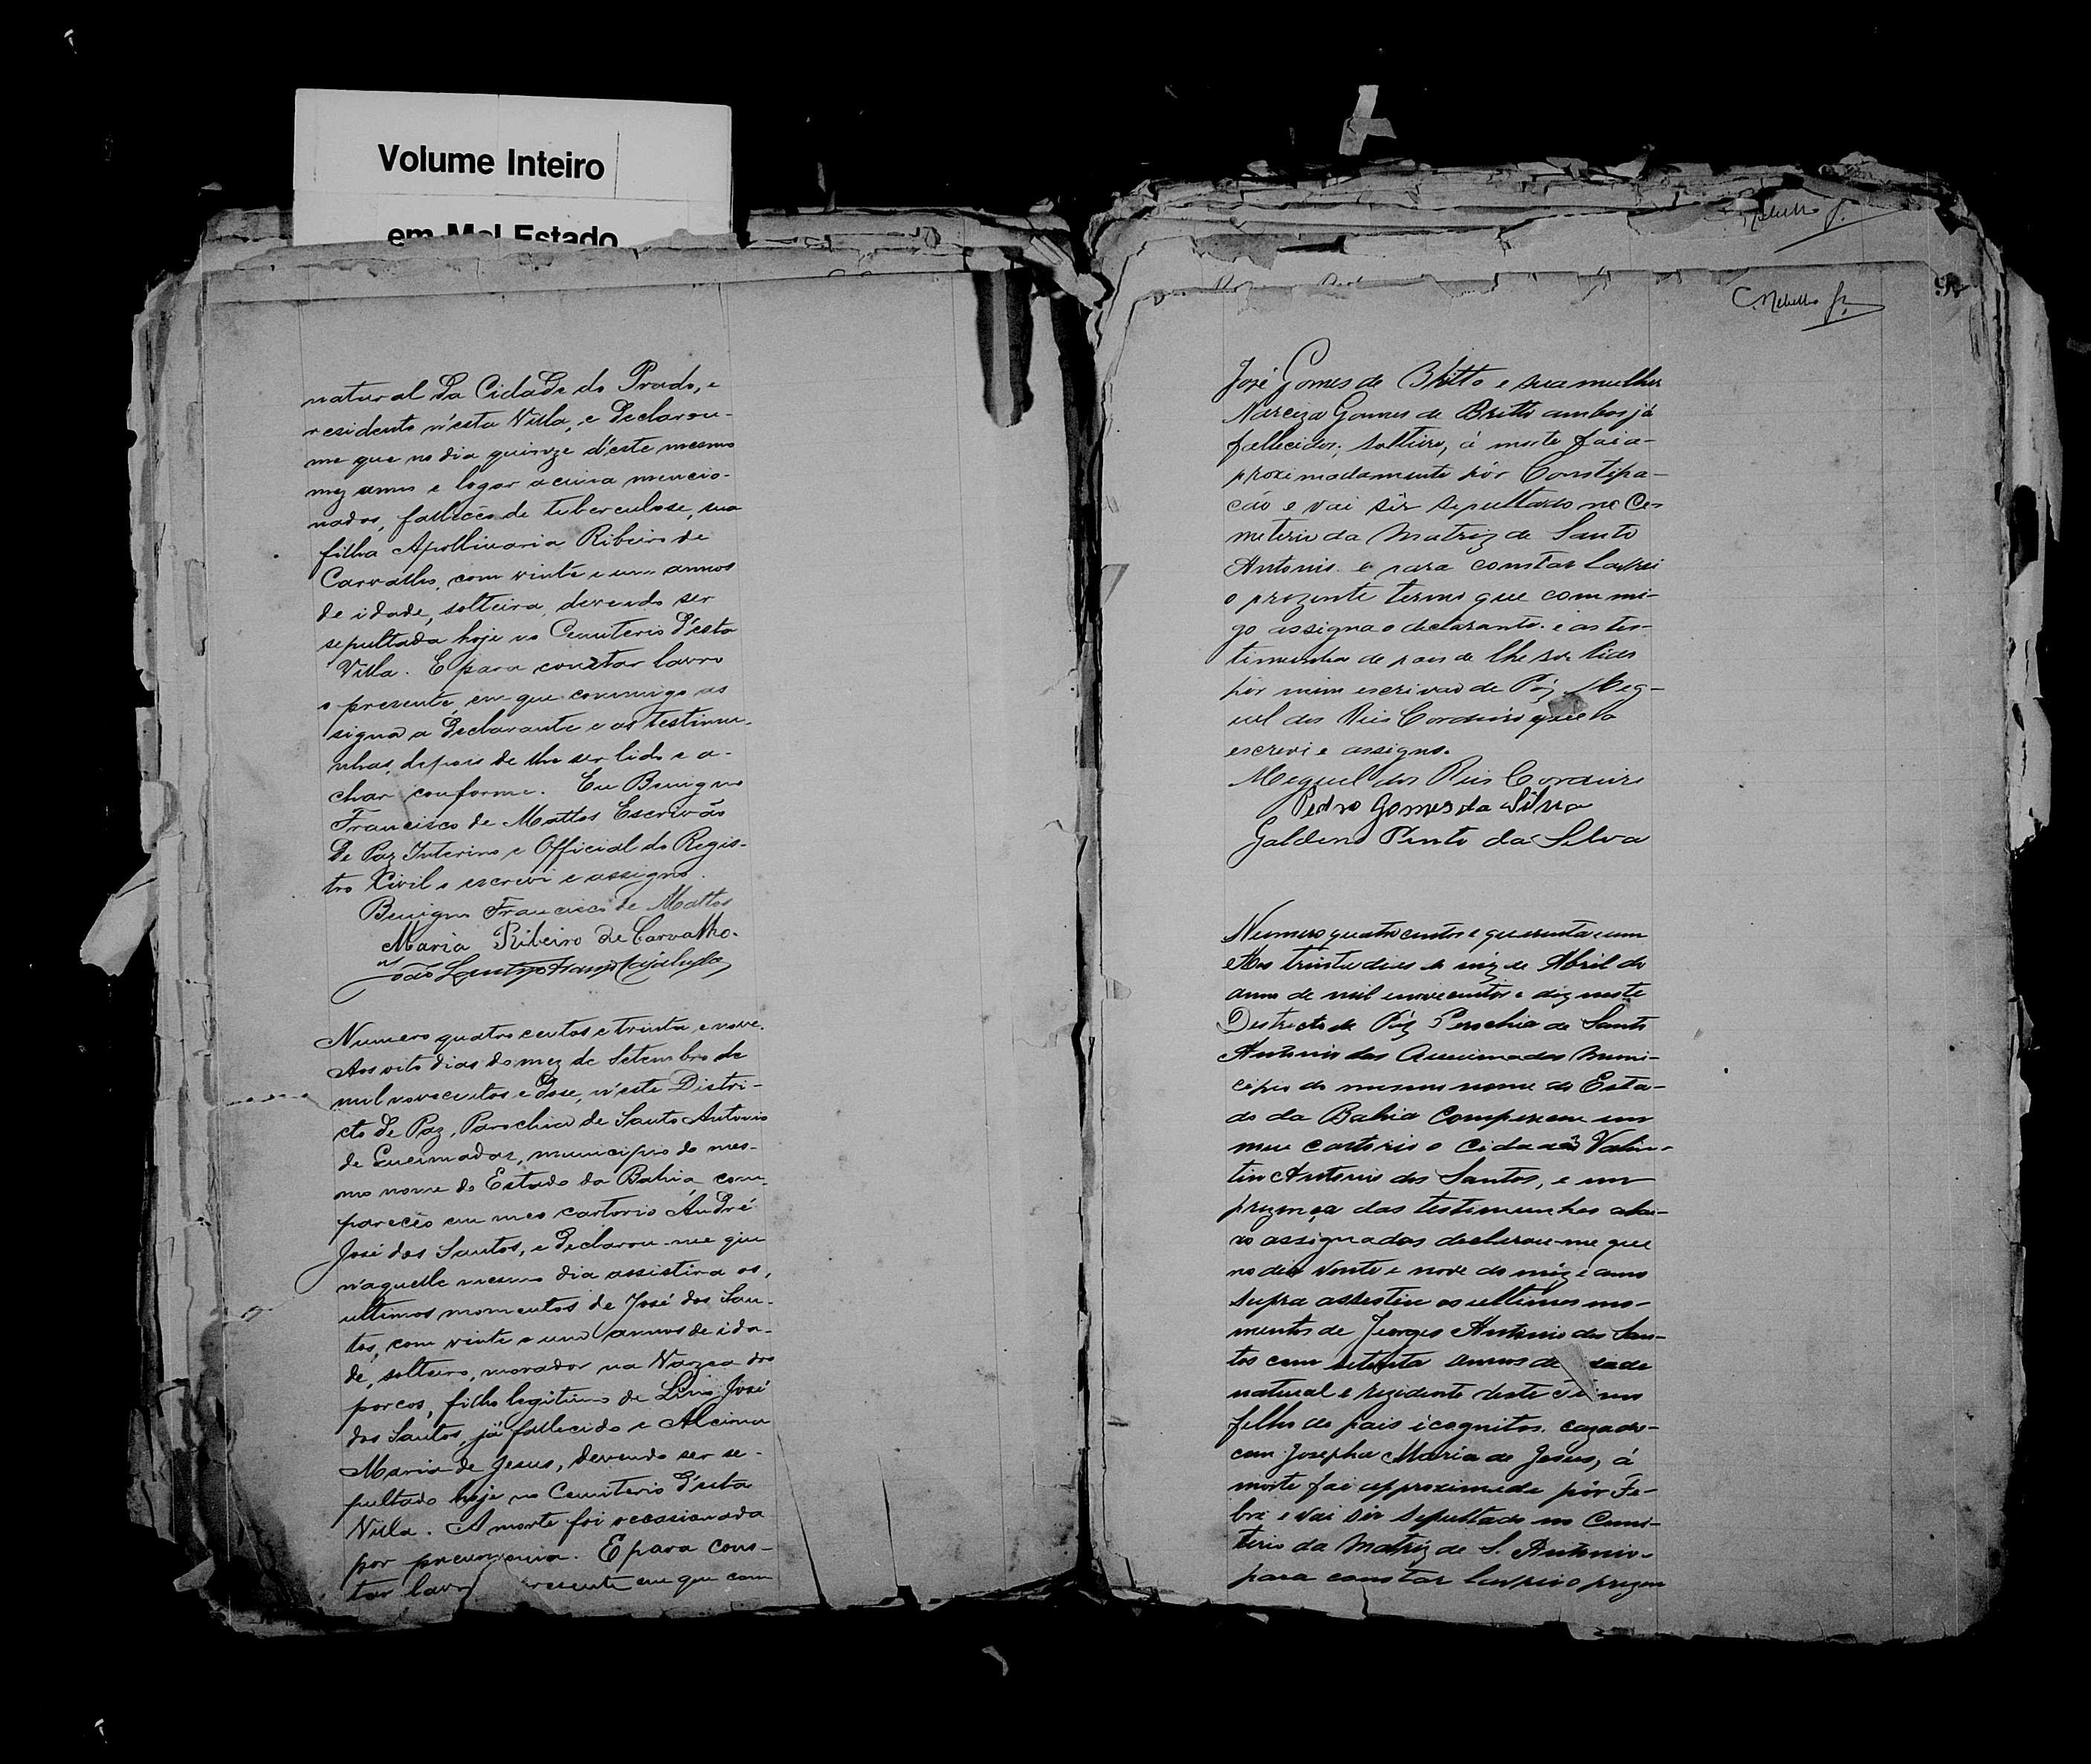 Volume Inteiro
em Mal Estado
natural da Cidade do Prado, e
residente n'esta Villa, e declarou-
me que no dia quinze d'este mesmo
mez anno e logar acima mencio-
nados, falleceo de tuberculose, sua
filha Apollinaria Ribeiro de
Carvalho, com vinte e um annos
de idade, solteira, devendo ser
sepultada hoje no Cemiterio d'esta
Villa. E para constar lavro
o presente, em que commigo as
signa a declarante e as testimu-
nhas, depois de lhe ser lido e a-
char conforme. Eu Benigno
Francisco de Mattos Escrivão
de Paz Interino e Official do Regis-
tro Civil o escrevi e assigno.
Benigno Francisco de Mattos
Maria Ribeiro de Carvalho.
João
Numero quatro centos e trinta e nove.
Aos oito dias do mez de Setembro de
mil novecentos e dose, n'este Distri-
cto de Paz, Parochia de Santo Antonio
de Queimadas, municipio do mes-
mo nome do Estado da Bahia, com-
pareceo em meo cartorio André
José dos Santos, e declarou-me que
n'aquelle mesmo dia assistira os,
ultimos momentos de José dos San-
tos, com vinte e um annos de ida-
de, solteiro, morador na Varzea dos
porcos, filho legitimo de Lino José
dos Santos, já fallecido e Alcina
Maria de Jesus, devendo ser se-
pultado hoje no Cemiterio d'esta
Villa. A morte foi occasionada
por pneumonia. E para cons-
tar lavro presente em que com
C. Rebello Jr.
José Gomes de Britto e sua mulher
Narciza Gomes de Britto ambos já
fallecidos; solteiro, á morte foi a-
proximadamente pór Constipa-
cão e vai sér sepultado no Ce-
meterio da Matriz de Santo
Antonio. e para constar lavrei
o prezente termo que commi-
go assigna o declarante. e as tes-
timunha de pois de lhe ser lido
pór mim escrivao de Páz Meg-
uel dos Reis Cordeiro que o
escrevi e assigno.
Meguel dos Reis Cordeiro
Pedro Gomes da Silva
Galdino Pinto da Selva
Numero quatro centos e quarenta e um
Aos trinta dias do méz de Abril do
anno de mil enovecentos e dez neste
Destricto de Páz Parochia de Santo
Antonio das Queimadas Muni-
cipio do mesmo nome do Esta-
do da Bahia Compareceu em
meu cartorio o Cidadão Valin-
tin Antonio dos Santos, e em
prezença das testimunhas abai-
xo assignadas declarou-me que
no dia vinte e nove do méz e anno
supra assestiu os ultimos mo-
mentos de Jeorges Antonio dos San-
tos com setenta annos de idade
natural e rezidente deste
felho de pais icognitos. cazado-
com Josepha Maria de Jesus, á
morte foi approximada pór Fe-
bre e vai sér sepultado no Cemi-
terio da Matriz de S. Antonio-
para constar lavrei o prezen